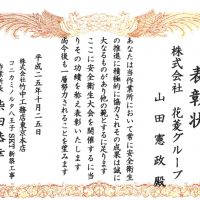 表彰状
株式会社 花菱グループ
山田憲政殿
あなたは当作業所において常に安全衛生
の推進に積極的に協力されその成果は誠に
大なるものがあり他の範とするに足ります
ここに安全衛生大会を開催するに当
りその功績を称え表彰いたします
尚今後も一層努力されることを望みます
平成二五年十月二五日
株式会社竹中工務店東京本店
コニカミノルタ八王子SKT新築工事